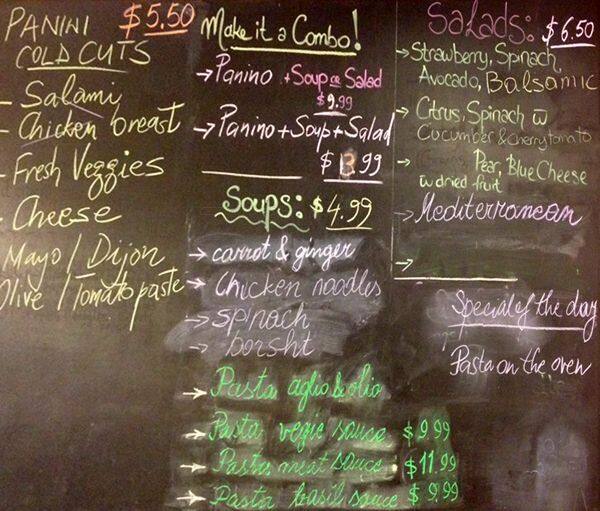 PANINI $5.50
COLD CUTS
- Salami
- Chicken breast
- Fresh Veggies
- Cheese
Mayo / Dijon
Olive / Tomato paste
Make it a Combo!
→ Panino + Soup or Salad
$9.99
→ Panino + Soup + Salad
$13.99
Soups: $4.99
→ carrot & ginger
→ Chicken noodles
→ spinach
→ borsht
→ Pasta aglio & olio
→ Pasta vegie sauce $9.99
→ Pasta meat sauce $11.99
→ Pasta basil sauce $9.99
Salads: $6.50
→ Strawberry, Spinach,
Avocado, Balsamic
→ Citrus, Spinach w
Cucumber & Cherry tomato
→ Pear, Blue Cheese
w dried fruit
→ Mediterranean
→
Special of the day
Pasta on the oven